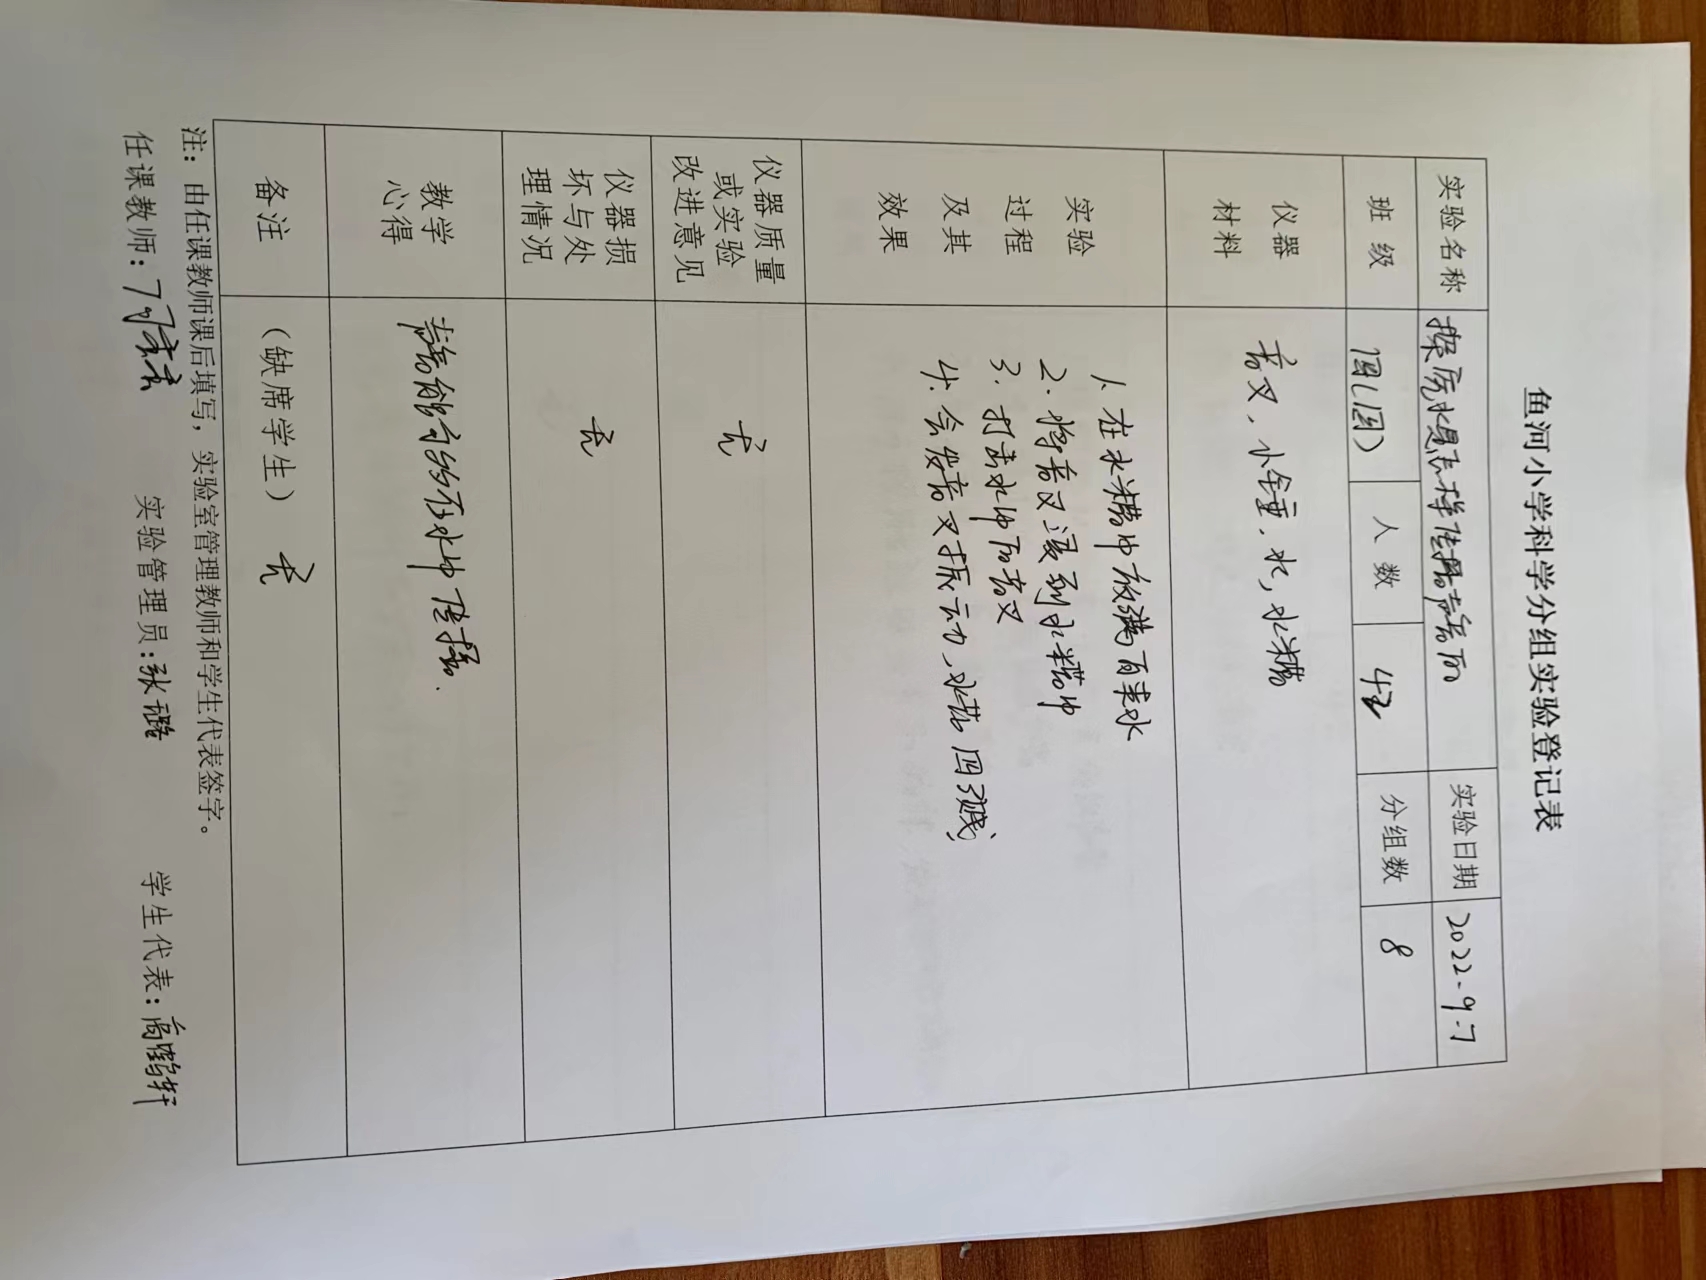 鱼河小学科学分组实验登记表
实验名称 探究水是怎样传播声音的 实验日期 2022.9.7
班级 四(四) 人数 42 分组数 8
仪器材料 音叉、小锤、水、水槽
实验过程及其效果 1.在水槽中放满自来水
2.将音叉放到水槽中
3.打击水中的音叉
4.会使音叉振动,水花四溅
仪器质量或实验改进意见 无
仪器损坏与处理情况 无
教学心得 声音能够在水中传播.
备注 (缺席学生) 无
注:由任课教师课后填写,实验室管理教师和学生代表签字。
任课教师: 实验管理员:张璐 学生代表:高鹤轩